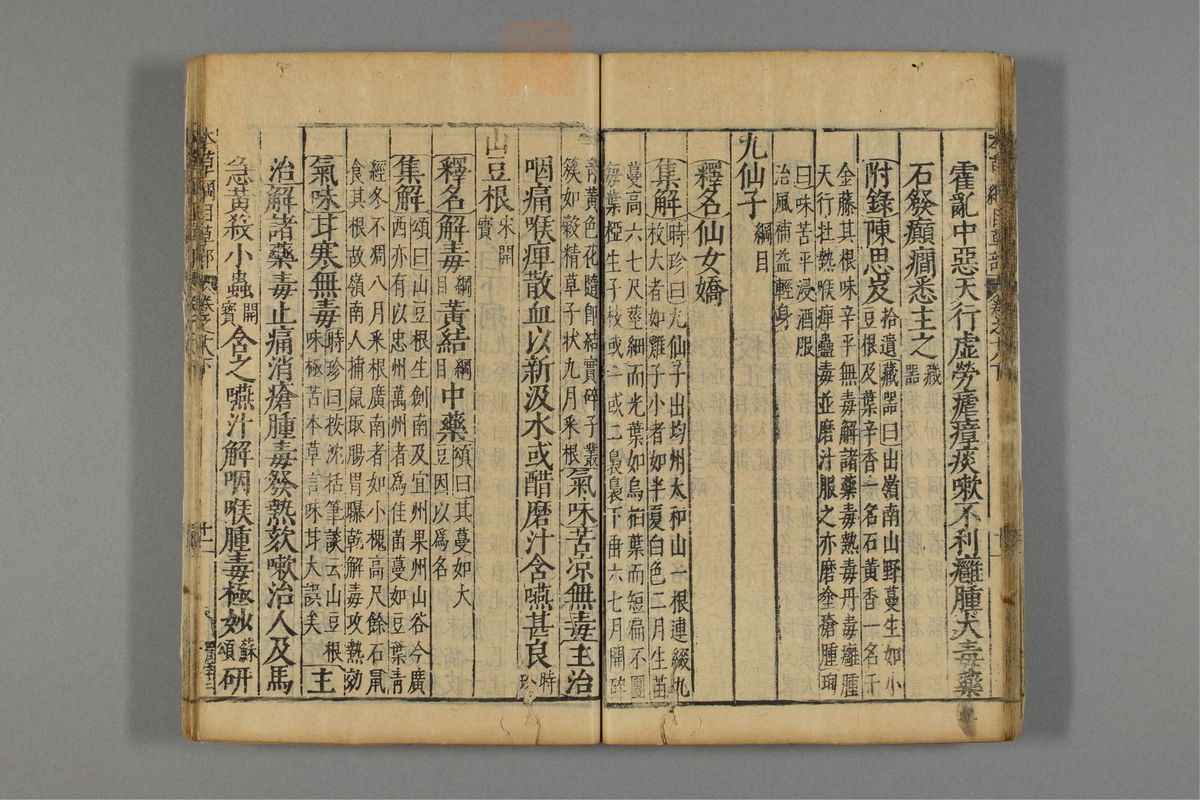 霍亂中惡天行虛勞瘧瘴痰嗽不利癰腫犬毒藥
石發癲癇悉主之藏器
附錄陳思岌拾遺藏器曰出嶺南山野蔓生如小
豆根及葉辛香一名石黃香一名千
金藤其根味辛平無毒解諸藥毒熱毒丹毒癰腫
天行壯熱喉痺蠱毒並磨汁服之亦磨塗瘡腫珣
曰味苦平浸酒服
治風補益輕身
九仙子綱目
釋名仙女嬌
集解時珍曰九仙子出均州太和山一根連綴九
枚大者如雞子小者如半夏白色二月生苗
蔓高六七尺莖細而光葉如烏桕葉而短扁不團
每葉椏生子枝或一或二裊裊下垂六七月開碎
青黃色花隨即結實碎子叢
簇如穀精草子狀九月采根氣味苦涼無毒主治
咽痛喉痺散血以新汲水或醋磨汁含嚥甚良時珍
山豆根宋開寶
釋名解毒綱目黃結綱目中藥頌曰其蔓如大
豆因以爲名
集解頌曰山豆根生劍南及宜州果州山谷今廣
西亦有以忠州萬州者為佳苗蔓如豆葉青
經冬不凋八月采根廣南者如小槐高尺餘石鼠
食其根故嶺南人捕鼠取腸胃曝乾解毒攻熱効
氣味甘寒無毒時珍曰按沈括筆談云山豆根
味極苦本草言味甘大誤矣主
治解諸藥毒止痛消瘡腫毒發熱欬嗽治人及馬
急黃殺小蟲開寶含之嚥汁解咽喉腫毒極妙蘇頌研